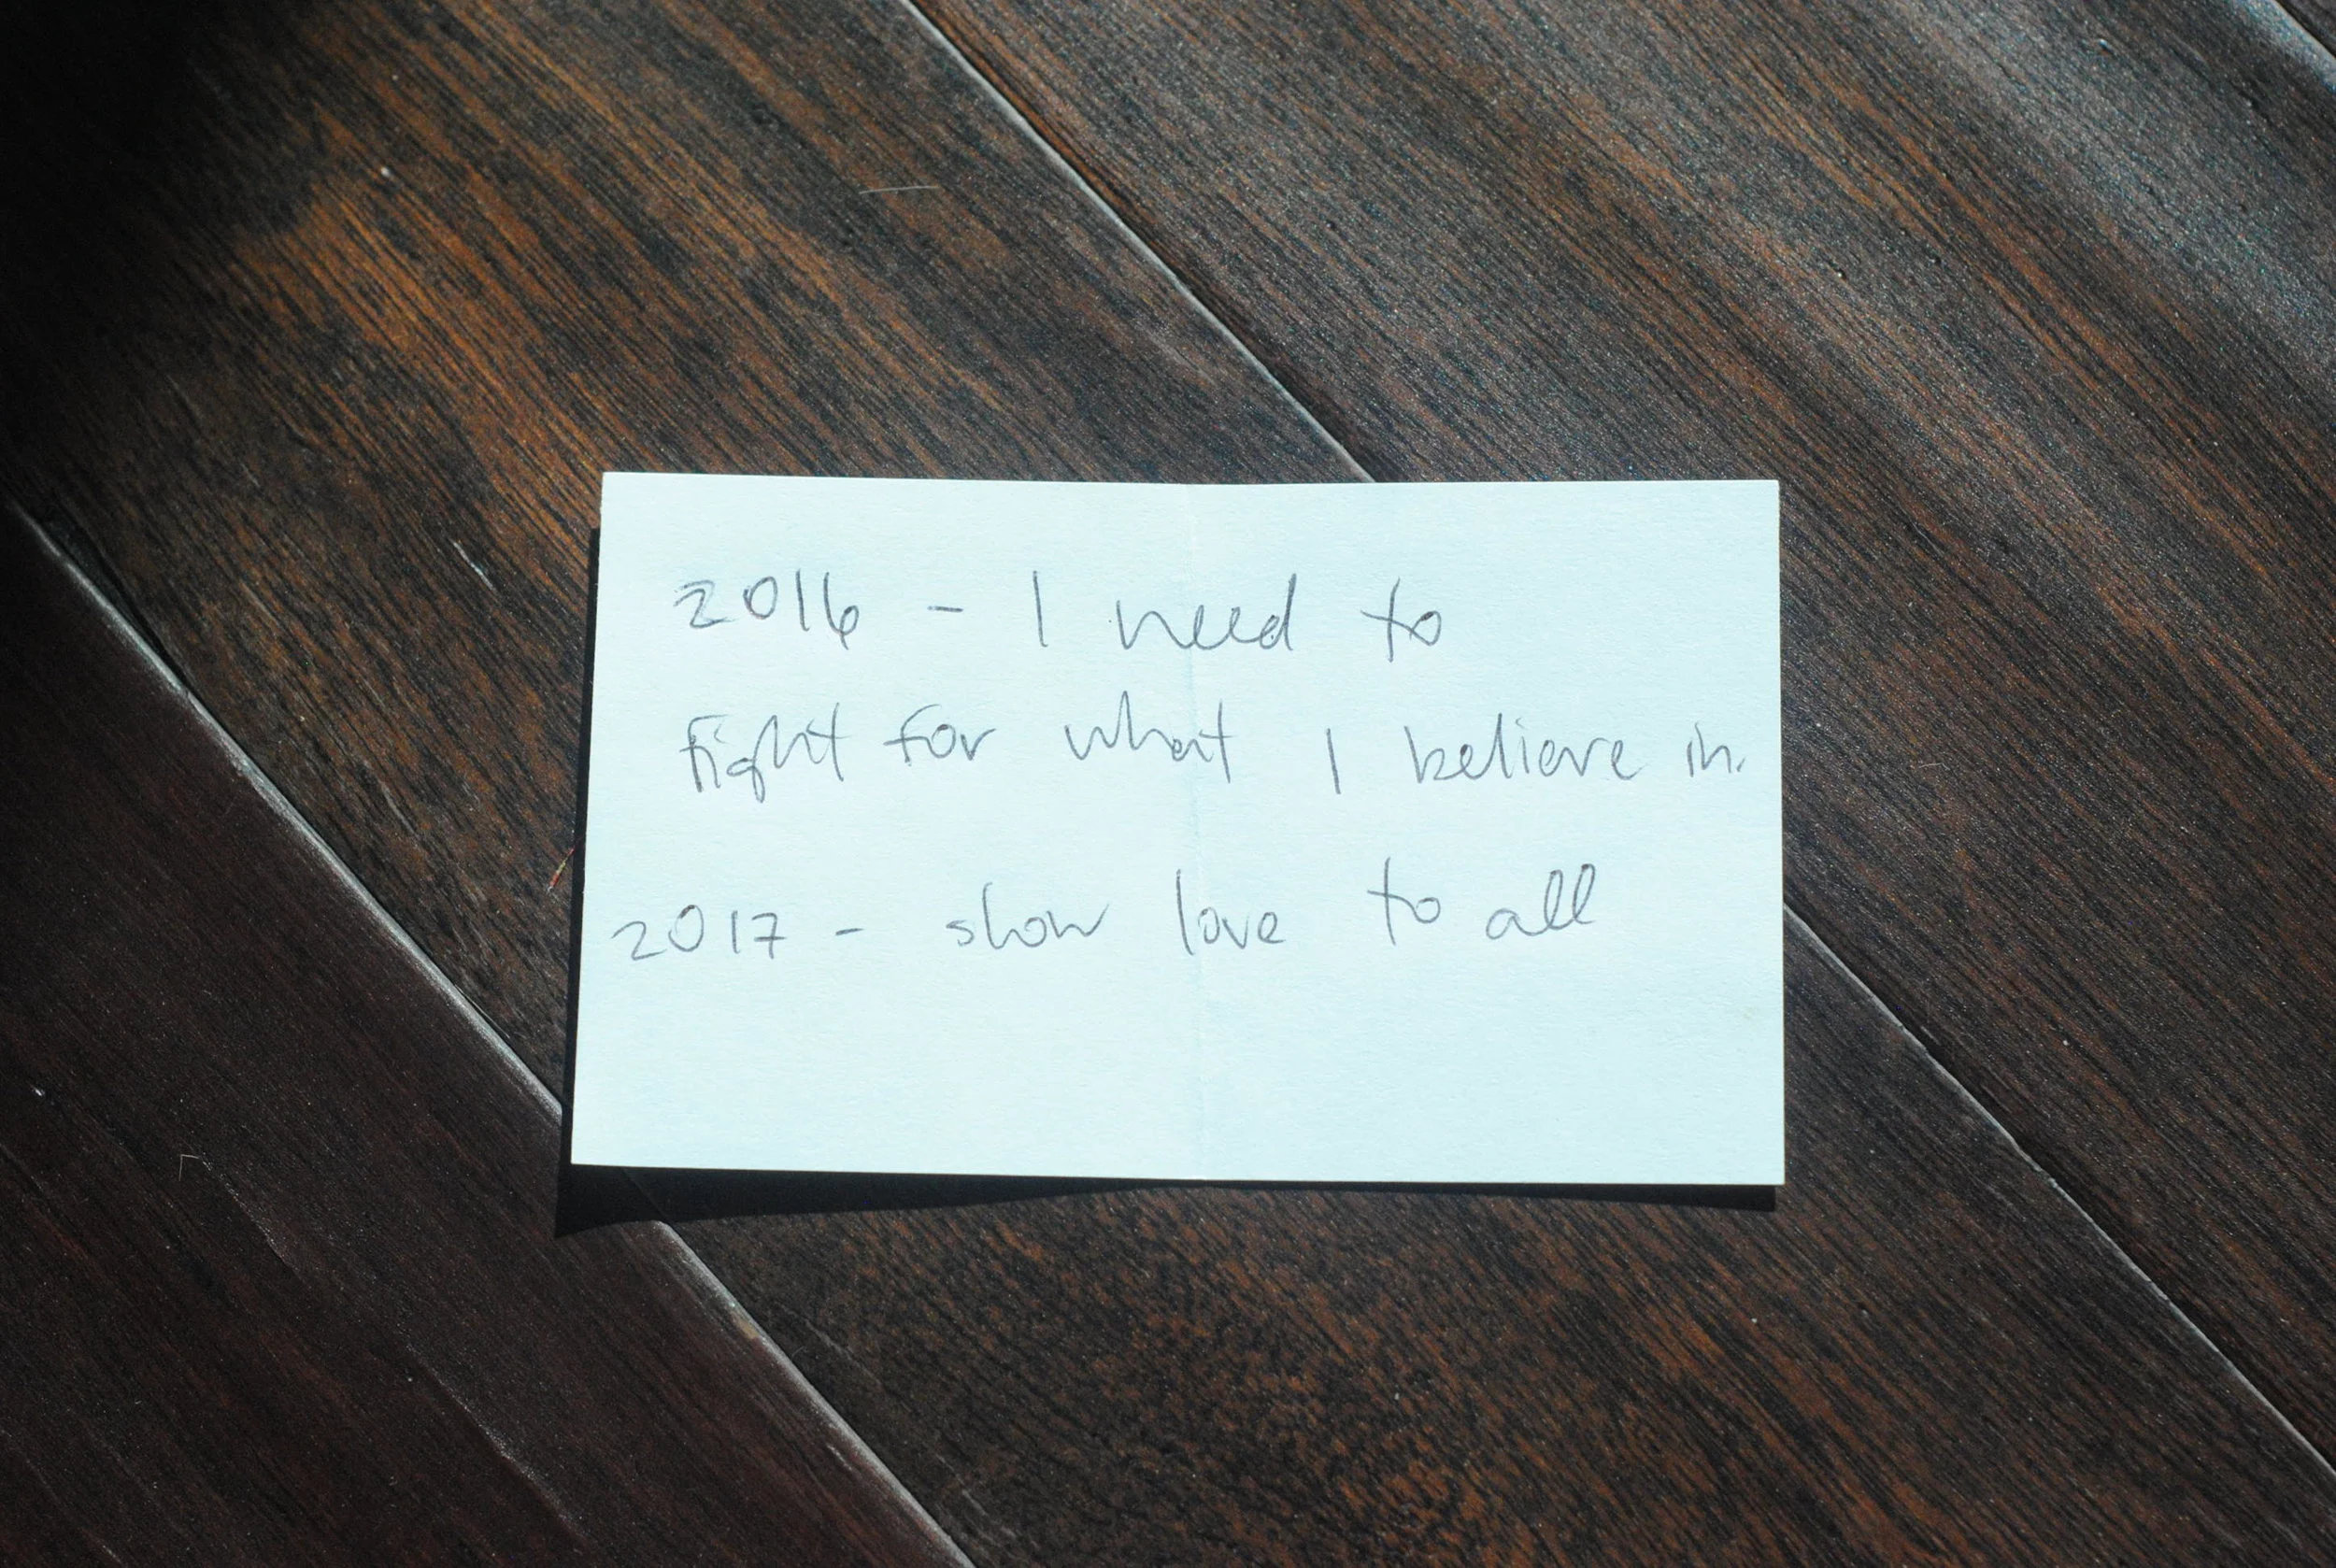 2016 - I need to
fight for what I believe in.
2017 - show love to all